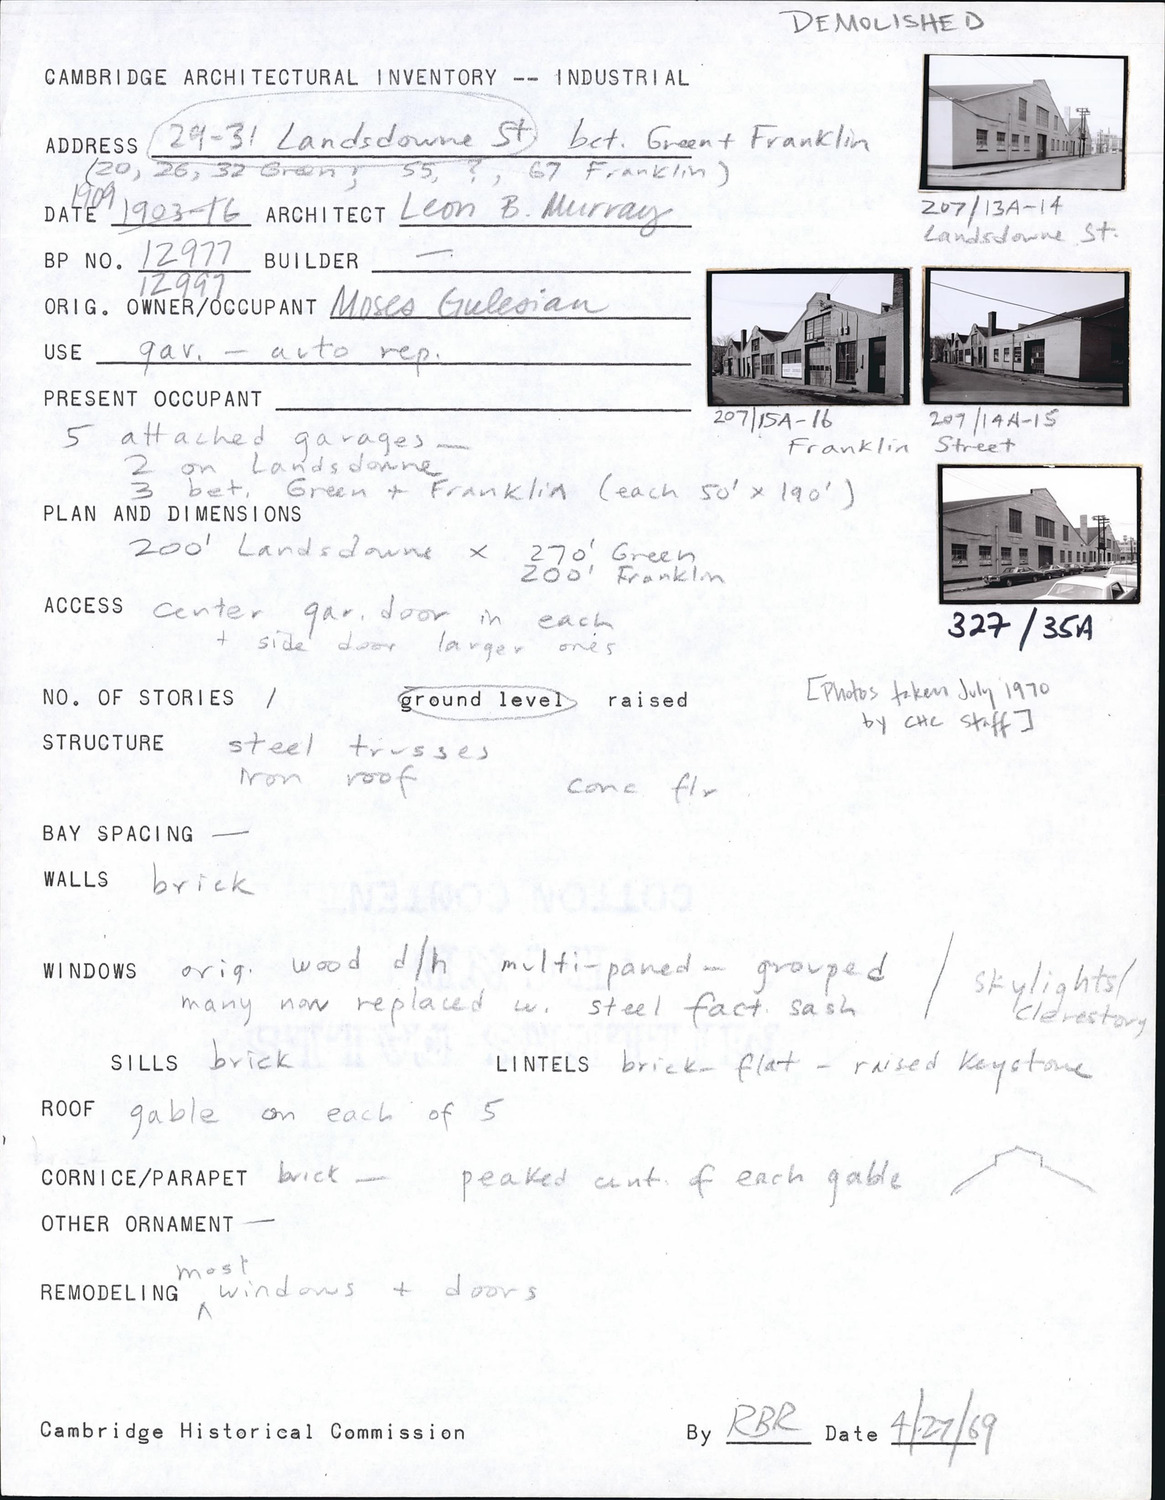 DEMOLISHED
CAMBRIDGE ARCHITECTURAL INVENTORY -- INDUSTRIAL
ADDRESS 29-31 Landsdowne St bet. Green + Franklin
(20, 26, 32 Green; 55, ?, 67 Franklin)
1909
DATE 1903-16 ARCHITECT Leon B. Murray
207/13A-14
Landsdowne St.
BP NO. 12977 BUILDER —
12997
ORIG. OWNER/OCCUPANT Moses Gulesian
USE gar. — auto rep.
PRESENT OCCUPANT
207/15A-16 207/14A-15
Franklin Street
5 attached garages —
2 on Landsdowne
3 bet. Green + Franklin (each 50' x 190')
PLAN AND DIMENSIONS
200' Landsdowne x 270' Green
200' Franklin
ACCESS center gar. door in each
+ side door larger ones
327/35A
NO. OF STORIES 1 ground level raised
[Photos taken July 1970
by CHC Staff]
STRUCTURE steel trusses
iron roof conc flr
BAY SPACING —
WALLS brick
WINDOWS orig. wood d/h multi-paned — grouped / skylights/
many now replaced w. steel fact. sash clerestory
SILLS brick LINTELS brick — flat — raised keystone
ROOF gable on each of 5
CORNICE/PARAPET brick — peaked cent. of each gable
OTHER ORNAMENT —
most
REMODELING ^ windows + doors
Cambridge Historical Commission By RBR Date 4/27/69